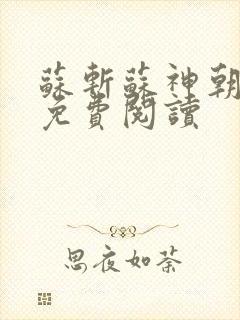 蘇斬蘇神朝
免費閱讀
思夜如荼